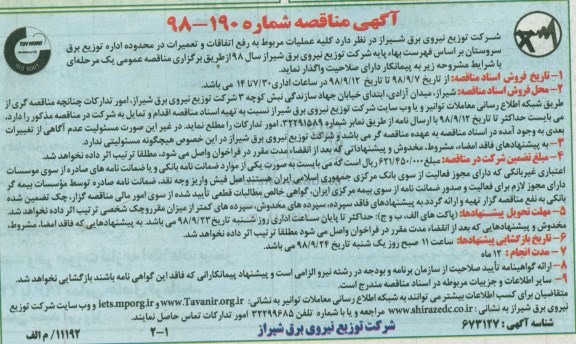 آگهی مناقصه شماره ۱۹۰-۹۸
شرکت توزیع نیروی برق شیراز در نظر دارد کلیه عملیات مربوط به رفع اتفاقات و تعمیرات در محدوده اداره توزیع برق
سروستان بر اساس فهرست بهاء پایه شرکت توزیع نیروی برق شیراز سال ۹۸ از طریق برگزاری مناقصه عمومی یک مرحله‌ای
با شرایط مشروحه زیر به پیمانکار دارای صلاحیت واگذار نماید.
۱- تاریخ فروش اسناد مناقصه: از تاریخ ۹۸/۹/۷ تا تاریخ ۹۸/۹/۱۲ در ساعات اداری ۷/۳۰ تا ۱۴ می باشد.
۲- محل فروش اسناد مناقصه: شیراز، میدان آزادی، ابتدای خیابان جهاد سازندگی نبش کوچه ۳ شرکت توزیع نیروی برق شیراز، امور تدارکات چنانچه مناقصه گری از
طریق شبکه اطلاع رسانی معاملات توانیر و یا وب سایت شرکت توزیع نیروی برق شیراز نسبت به تهیه اسناد مناقصه اقدام و تمایل به شرکت در مناقصه مذکور را دارد،
می بایست حداکثر تا تاریخ ۹۸/۹/۱۲ با ارسال نامه از طریق نمابر شماره ۳۲۲۹۱۵۸۹ امور تدارکات را مطلع نماید. در غیر این صورت مسئولیت عدم آگاهی از تغییرات
بعدی به وجود آمده در اسناد مناقصه به عهده مناقصه گر می باشد و شرکت توزیع نیروی برق شیراز در این خصوص هیچگونه مسئولیتی ندارد.
۳- به پیشنهادهای فاقد امضاء، مشروط، مخدوش و پیشنهاداتی که بعد از انقضاء مدت مقرر در فراخوان واصل می شود، مطلقا ترتیب اثر داده نخواهد شد.
۴- مبلغ تضمین شرکت در مناقصه: مبلغ ۶۲۱/۴۵۰/۰۰۰ ریال است که می بایست به صورت یکی از موارد ضمانت نامه بانکی و یا ضمانت نامه های صادره از سوی موسسات
اعتباری غیربانکی که دارای مجوز فعالیت از سوی بانک مرکزی جمهوری اسلامی ایران هستند، اصل فیش واریز وجه نقد، ضمانت نامه صادره توسط مؤسسات بیمه گر
دارای مجوز لازم برای فعالیت و صدور ضمانت نامه از سوی بیمه مرکزی ایران، گواهی خالص مطالبات قطعی تأیید شده از سوی امور مالی مناقصه گزار، چک تضمین شده
بانکی به نفع مناقصه گزار تهیه و ارائه گردد. به پیشنهادهای فاقد سپرده، سپرده های مخدوش، سپرده های کمتر از میزان مقرر و چک شخصی ترتیب اثر داده نخواهد شد.
۵- مهلت تحویل پیشنهادها: (پاکت های الف، ب و ج): حداکثر تا پایان ساعت اداری روز شنبه تاریخ ۹۸/۹/۲۳ می باشد. به پیشنهادهایی که فاقد امضا، مشروط،
مخدوش و پیشنهادهایی که بعد از انقضاء مدت مقرر در فراخوان واصل می شود مطلقا ترتیب اثر داده نخواهد شد.
۶- تاریخ بازگشایی پیشنهادها: ساعت ۱۱ صبح روز یک شنبه تاریخ ۹۸/۹/۲۴ می باشد.
۷- مدت انجام: ۱۲ ماه
۸- ارائه گواهینامه تأیید صلاحیت از سازمان برنامه و بودجه در رشته نیرو الزامی است و پیشنهاد پیمانکارانی که فاقد این گواهی نامه باشند بازگشایی نخواهد شد.
۹- سایر اطلاعات و جزییات مربوطه در اسناد مناقصه مندرج است.
متقاضیان برای کسب اطلاعات بیشتر می توانند به شبکه اطلاع رسانی معاملات توانیر به نشانی: www.Tavanir.org.ir و iets.mporg.ir و وب سایت شرکت توزیع
نیروی برق شیراز به نشانی: www.shirazedc.co.ir مراجعه و یا با شماره تلفن ۳۲۲۹۹۶۸۵ امور تدارکات تماس حاصل نمایند.
شناسه آگهی: ۶۷۳۱۲۷ شرکت توزیع نیروی برق شیراز ۲-۱ ۱۱۱۹۲/م الف